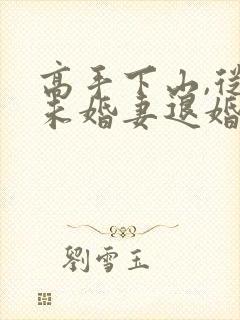 高手下山,從
未婚妻退婚
劉雪玉